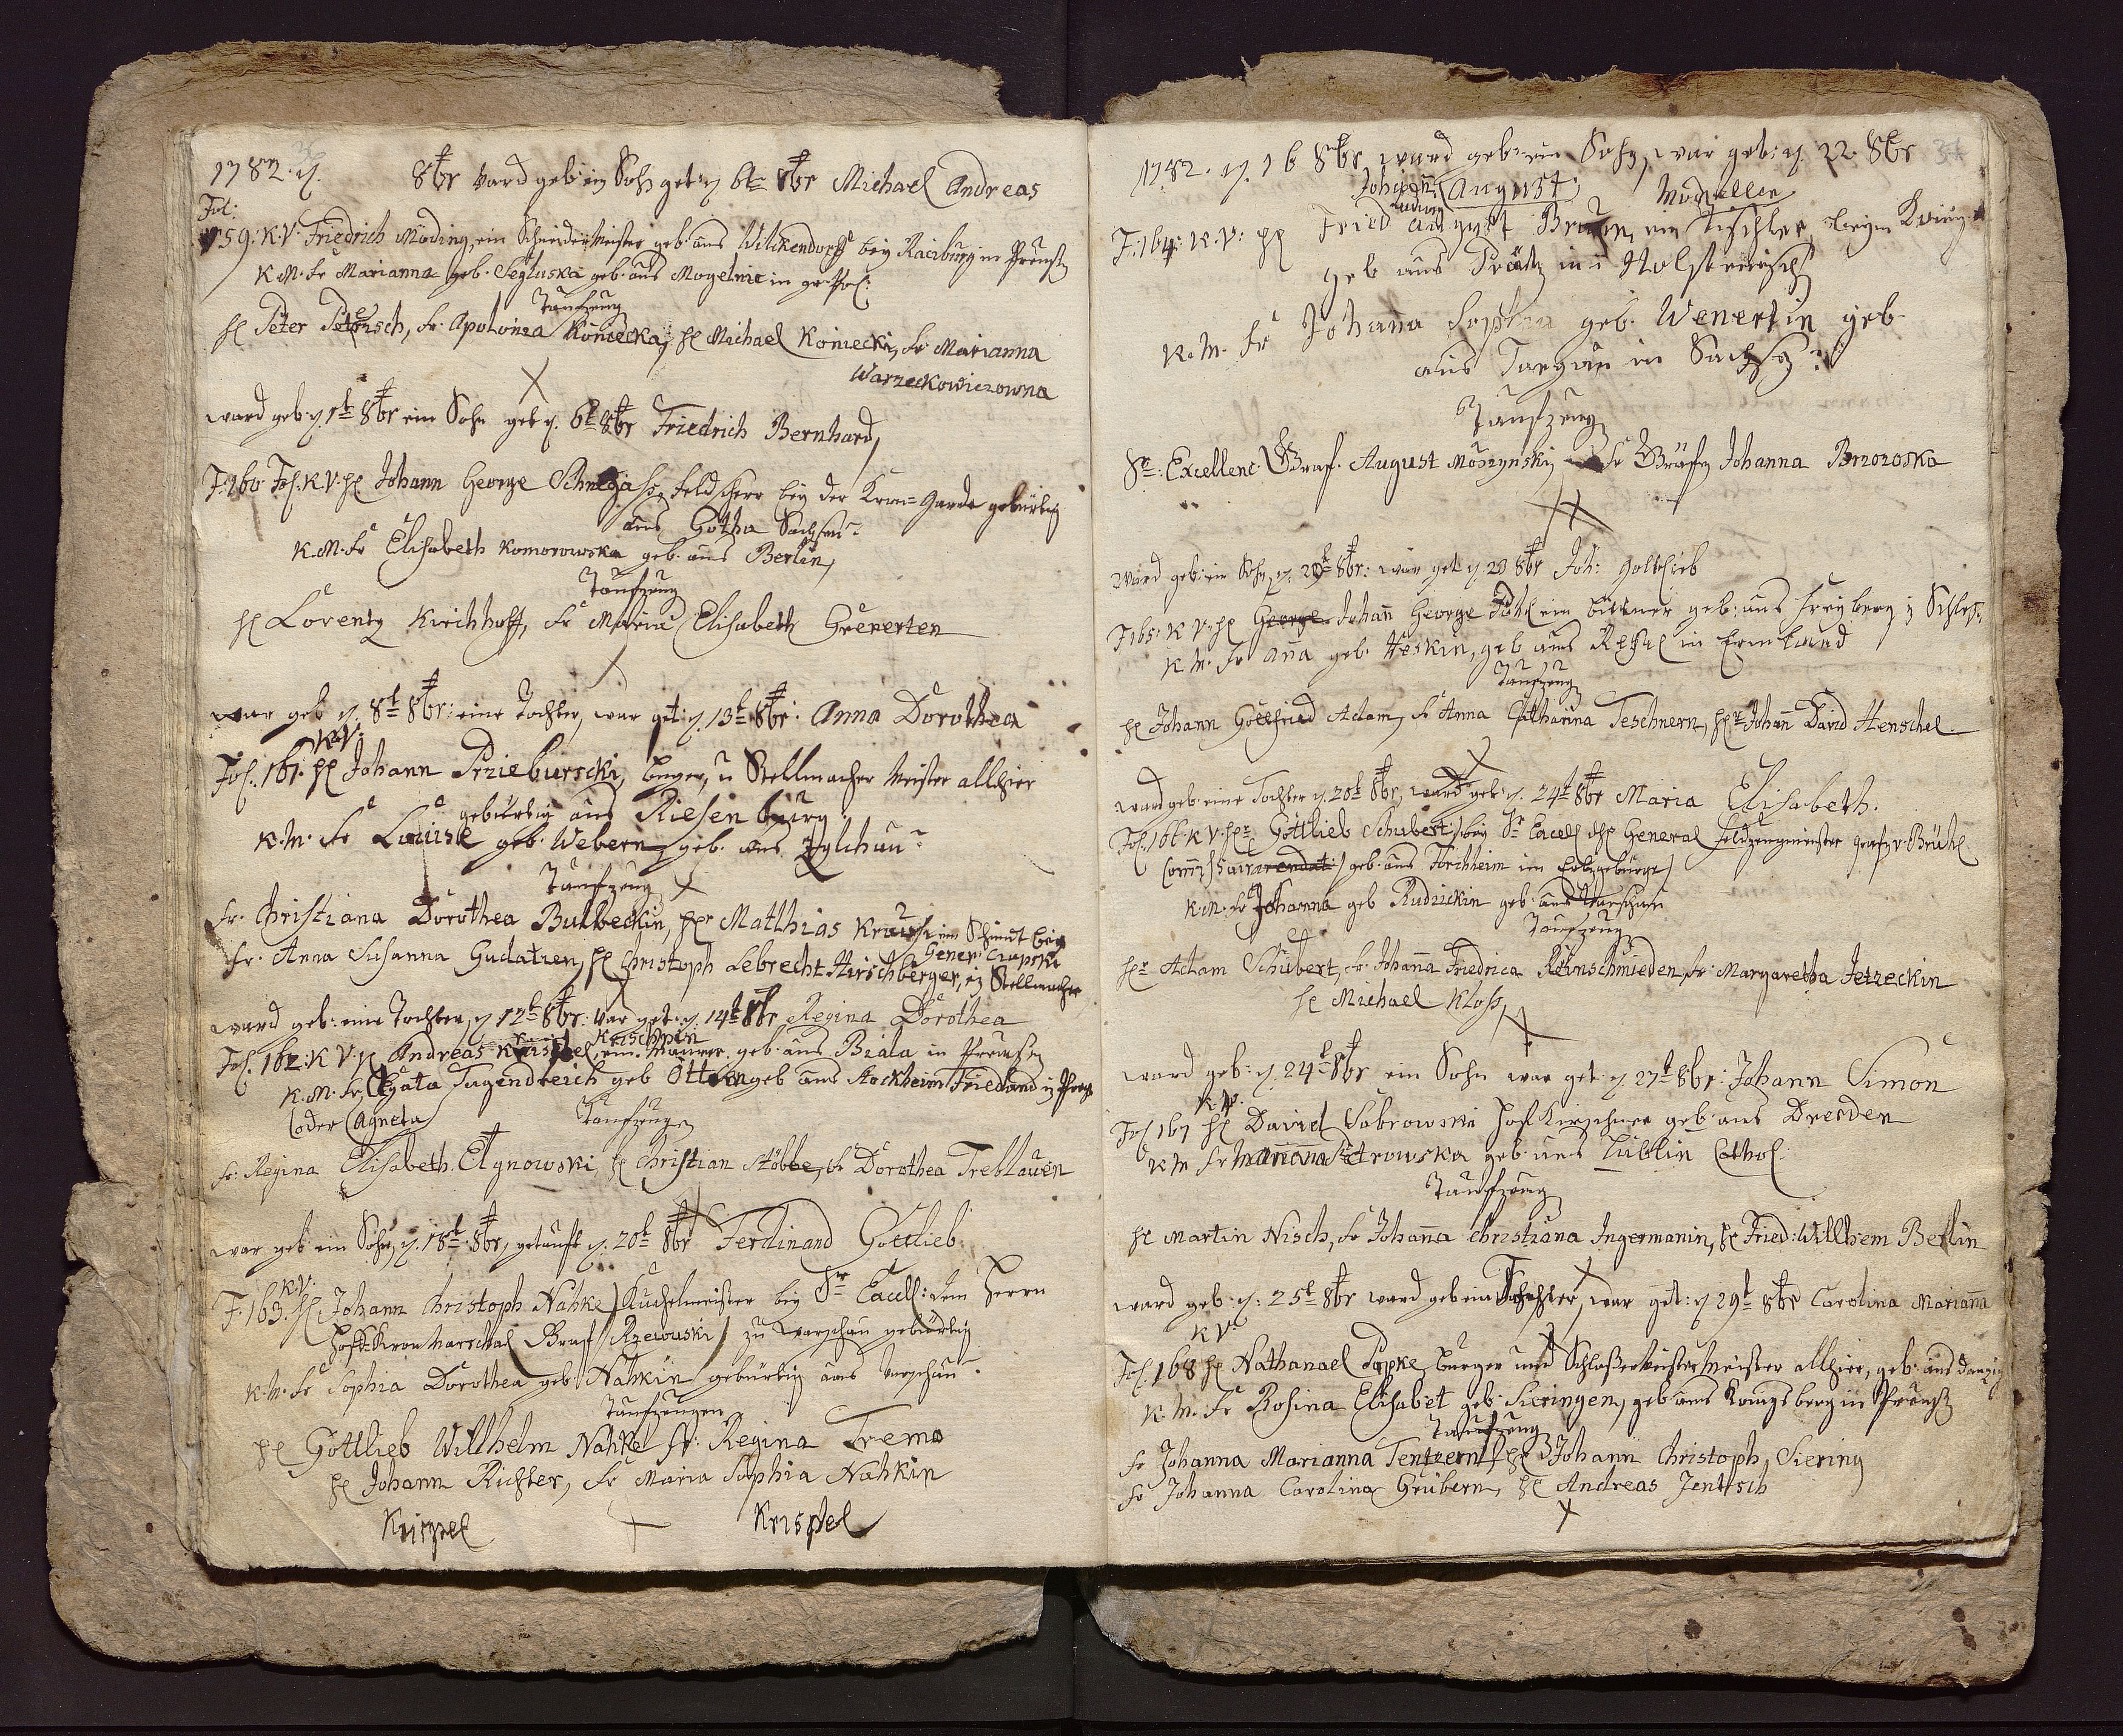 1782. d. 8br ward geb: ein Sohn get: d 6te 8br Michael Andreas
Fol:
159: K.V: Friedrich Möding, ein Schneider Meister geb. aus Wilckendorff bey Raciburg in Preuß
K.M. Fr Marianna geb. Segluska geb. aus Mogelnic in
Taufzeug
H Peter Petersch, Fr. Apolonia Koniecka, H Michael Koniecki, Fr Marianna
Warzeckowiczowna
ward geb. d. 1te 8br ein Sohn get d. 6t 8br Friedrich Bernhard,
F. 160 Fol. K.V. H Johann George Feldscherr bey der Kron-Garde gebürtig
aus Gotha Sachsen
K.M. Fr Elisabeth Komorowska geb. aus Berlin,
Taufzeug
H Lorentz Kirchhoff, Fr Maria Elisabeth Grenerten
war geb d. 8te 8br: eine Tochter, war get: d. 13te 8br: Anna Dorothea
K.V.
Fol. 161. H Johann Przieburscki, Burger, u Stellmacher Meister allhier
gebürtig aus Riesenburg
K.M. Fr Louise geb. Webern, geb. aus Zylchau
Taufzeug
Fr. Christiana Dorothea Bulbeckin, Hr Matthias Kraus, ein Schmidt bey
Gener: Czapski
Fr. Anna Susanna Gudatien, H Christoph Lebrecht Hirschberger, ein Stellmacher
ward geb: eine Tochter, d 12te 8br: war get: d. 14te 8br Regina Dorothea
Krischpin
Fol. 162: K V: H Andreas ein Maurer geb. aus Biala in Preussen
K.M. Fr. Agata Tugendreich geb Otto geb aus Stockheim Friedland in
(oder Agneta)
Taufzeugen
Fr: Regina Elisabeth Elgnowski, H Christian Stöbbe, Fr Dorothea Treblauen
war geb ein Sohn, d. 18te 8br, getauft d. 20te 8br Ferdinand Gottlieb
K.V.
F. 163. H Johann Christoph Nahke, Küchelmeister bey Sr Excell: dem Herrn
Hoff Kron Marschal Graf Rzewuski, zu Warschau gebürtig
K.M. Fr Sophia Dorothea geb: Nahkin gebürtig aus Warschau
Taufzeugen
H Gottlieb Willhelm Nahke, Fr: Regina Tremo
H Johann Richter, Fr Maria Sophia Nahkin
Krispel Krispel
1782. d. 16 8br ward geb: ein Sohn, war geb: d. 22. 8br
Johann August
Ludwig
F. 164: K.V: H Fried August ein Tischler
geb aus im Holsteinisch
K.M. Fr Johanna Sophia geb. Wenertin geb
aus Torgau in Sachsen
Taufzeug
Sr: Excellenc Graf. August Moszynski, Fr Gräfin Johanna Brzozoska
ward geb: ein Sohn, d. 20te 8br: war get d 23 8br Joh: Gottlieb
F 165: K V: H George Johann George Pohl ein Bittner geb: aus Freyberg in Schles:
K.M. Fr Anna geb. Heskin, geb aus Ressel in Ermland
Taufzeug
H Johann Gottfried Adam, Fr Anna Catharina Teschnern, Hr Johann David Henschel.
ward geb. eine Tochter d. 20te 8br, ward get: d. 24te 8br Maria Elisabeth.
Fol. 166. K V: Hr Gottlieb Schubert, bey Sr Excell H General Feldzeugmeister Grafen v. Brühl
geb. aus Forchheim im Ertzgebürge
K.M. Fr Johanna geb Rudzickin geb. aus Warschau
Taufzeug
Hr Adam Schubert, Fr. Johanna Friedrica Reinschmieden, Fr: Margaretha Jetzeckin
H Michael Kloss,
ward geb: d. 24te 8br ein Sohn war get: d 27te 8br: Johann Simon
K.V.
Fol 167 H David Sabrowski Hof Kirschner geb. aus Dresden
K M Fr Marianna Petrowska geb aus Lublin Cathol.
Taufzeug
H Martin Nisch, Fr Johanna Christiana Ingermanin, H Fried: Willhem Berlin
ward geb: d: 25te 8br ward geb eine Tochter, war get: d 29te 8br Carolina Marianna
K V
Fol. 168 H Nathanael Popke, burger und Schloßer Meister Meister allhier, geb: aus Danzig
K.M. Fr Rosina Elisabet geb: Sieringen, geb aus Königsberg in Preuß
Taufzeug
Fr Johanna Marianna Tentzern, H Johann Christoph Siering
Fr Johanna Carolina Grubern, H Andreas Jentsch